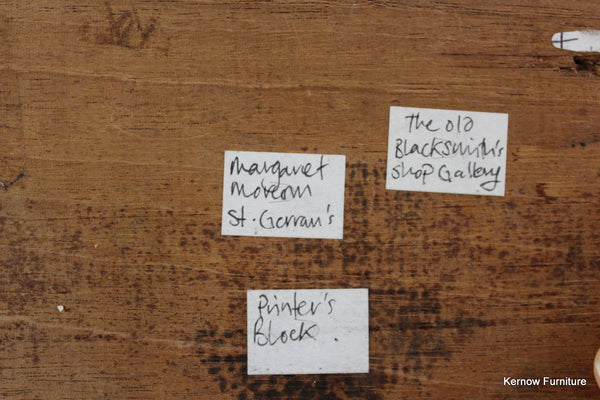 The old
Blacksmith's
Shop Gallery
Margaret
St. Gerran's
Printer's
Block.
Kernow Furniture